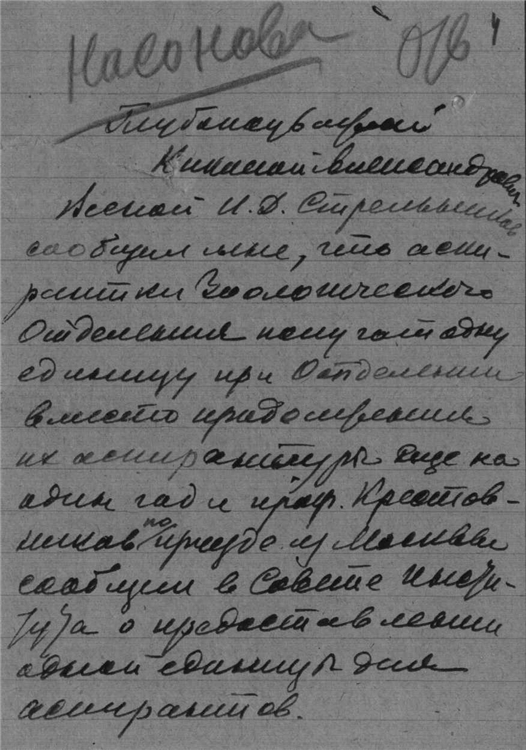 Насонова 4
Глубокоуважаемый
Николай Александрович
Весной И. Д. Стрельников
сообщил мне, что аспи-
рантки Зоологического
Отделения получат одну
единицу при Отделении
вместо продолжения
их аспирантуры еще на
один год и проф. Крестов-
ников по приезде из Москвы
сообщил в Совете Инсти-
тута о предоставлении
одной единицы для
аспирантов.